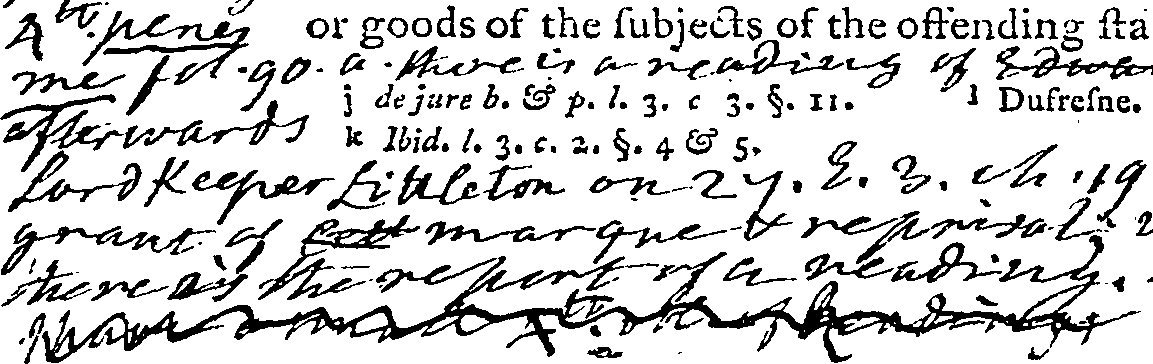 4th. penes or goods of the ſubjects of the offending ſta
me fol. 90. a. there is a reading of Edwa
j de jure b. & p. l. 3. c 3. §. 11. l Dufreſne.
afterwards
k Ibid. l. 3. c. 2. §. 4 & 5.
Lord Keeper Littleton on 27. E. 3. ch. 19
grant of marque & reprisal;
there is the report of a reading.